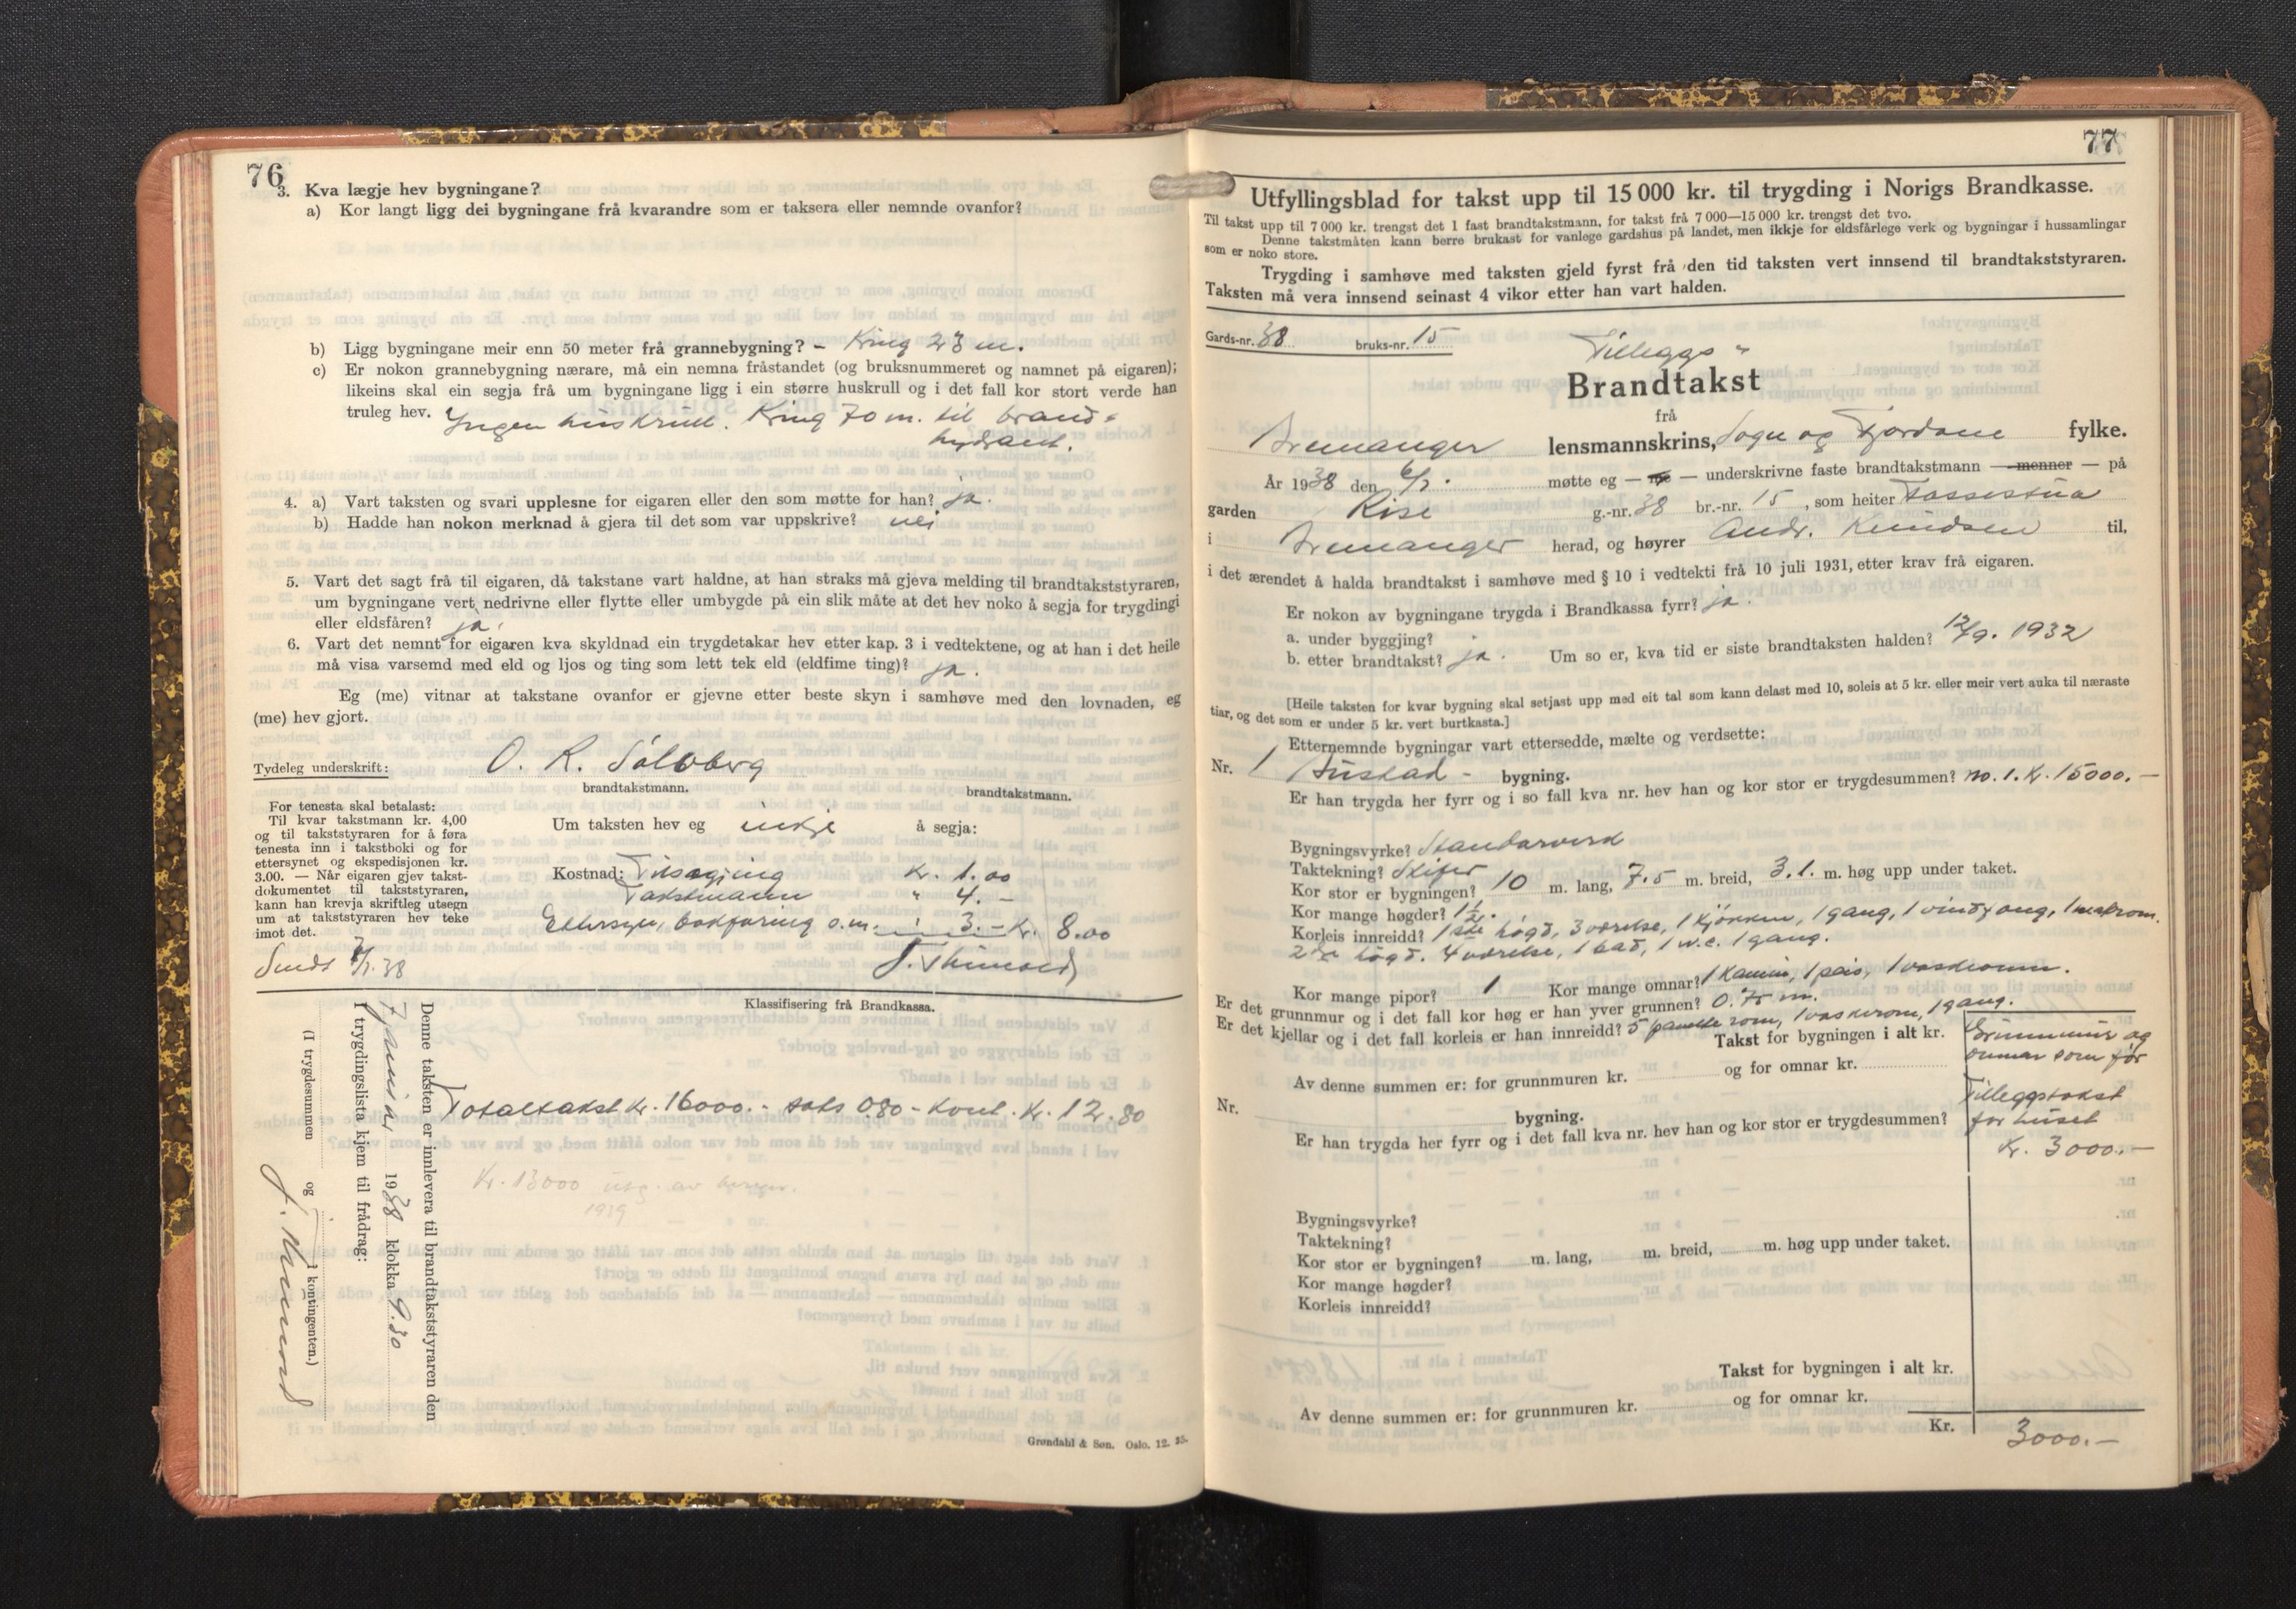 76
3. Kva lægje hev bygningane?
a) Kor langt ligg dei bygningane frå kvarandre som er taksera eller nemnde ovanfor?
b) Ligg bygningane meir enn 50 meter frå grannebygning? – Kring 23 m.
c) Er nokon grannebygning nærare, må ein nemna fråstandet (og bruksnummeret og namnet på eigaren);
likeins skal ein segja frå um bygningane ligg i ein større huskrull og i det fall kor stort verde han
truleg hev. Yngen huskrull. Kring 70 m. til brand-
hydrant.
4. a) Vart taksten og svari upplesne for eigaren eller den som møtte for han? ja.
b) Hadde han nokon merknad å gjera til det som var uppskrive? nei
5. Vart det sagt frå til eigaren, då takstane vart haldne, at han straks må gjeva melding til brandtakststyraren,
um bygningane vert nedrivne eller flytte eller umbygde på ein slik måte at det hev noko å segja for trygdingi
eller eldsfåren? ja.
6. Vart det nemnt for eigaren kva skyldnad ein trygdetakar hev etter kap. 3 i vedtektene, og at han i det heile
må visa varsemd med eld og ljos og ting som lett tek eld (eldfime ting)? ja.
Eg (me) vitnar at takstane ovanfor er gjevne etter beste skyn i samhøve med den lovnaden, eg
(me) hev gjort.
Tydeleg underskrift: O. R. Sølvberg
brandtakstmann. brandtakstmann.
For tenesta skal betalast:
Til kvar takstmann kr. 4,00
og til takststyraren for å føra
tenesta inn i takstboki og for
ettersynet og ekspedisjonen kr.
3.00. — Når eigaren gjev takst-
dokumentet til takststyraren,
kann han krevja skriftleg utsegn
um at takststyraren hev teke
imot det.
Um taksten hev eg inkje å segja:
Kostnad: Tilsegjing Kr. 1.00
Takstmann " 4. –
Ettersyn, bokføring o.m. " 3. – Kr. 8.00
Sendt 7/1.38
Klassifisering frå Brandkassa.
Denne taksten er innlevera til brandtakststyraren den
7 januar 1938 klokka 9.30
I trygdingslista kjem til frådrag:
(I trygdesummen og i kontingenten.)
Totaltakst Kr. 16000.- sats 0.80 - kont. Kr. 12.80
Kr. 13000
1939
Grøndahl & Søn. Oslo. 12. 35.
77
Utfyllingsblad for takst upp til 15 000 kr. til trygding i Norigs Brandkasse.
Til takst upp til 7 000 kr. trengst det 1 fast brandtakstmann, for takst frå 7 000—15 000 kr. trengst det tvo.
Denne takstmåten kann berre brukast for vanlege gardshus på landet, men ikkje for eldsfårlege verk og bygningar i hussamlingar
som er noko store.
Trygding i samhøve med taksten gjeld fyrst frå den tid taksten vert innsend til brandtakststyraren.
Taksten må vera innsend seinast 4 vikor etter han vart halden.
Gards-nr. 38 bruks-nr. 15
Tilleggs -
Brandtakst
frå
Bremanger lensmannskrins, Sogn og Fjordane fylke.
År 1938 den 6/1. møtte eg — me — underskrivne faste brandtakstmann — menner — på
garden Rise g.-nr. 38 br.-nr. 15, som heiter Fossestua
i Bremanger herad, og høyrer Andr. Knudsen til,
i det ærendet å halda brandtakst i samhøve med § 10 i vedtekti frå 10 juli 1931, etter krav frå eigaren.
Er nokon av bygningane trygda i Brandkassa fyrr? ja.
a. under byggjing?
b. etter brandtakst? ja. Um so er, kva tid er siste brandtaksten halden? 12/9. 1932
[Heile taksten for kvar bygning skal setjast upp med eit tal som kann delast med 10, soleis at 5 kr. eller meir vert auka til næraste
tiar, og det som er under 5 kr. vert burtkasta.]
Etternemnde bygningar vart ettersedde, mælte og verdsette:
Nr. 1 Bustad - bygning.
Er han trygda her fyrr og i so fall kva nr. hev han og kor stor er trygdesummen? no. 1. Kr. 15000. –
Bygningsvyrke? Standarverk
Taktekning? Skifer
Kor stor er bygningen? 10 m. lang, 7.5 m. breid, 3.1. m. høg upp under taket.
Kor mange høgder? 1 1/2.
Korleis innreidd? 1ste høgd, 3 værelse, 1 kjøkken, 1 gang, 1 vindfang, 1 matrom.
2dre høgd. 4 værelse, 1 bad, 1 w.c. 1 gang.
Kor mange pipor? 1 Kor mange omnar? 1 Kamin, 1 peis, 1 vaskeomn.
Er det grunnmur og i det fall kor høg er han yver grunnen? 0.75 m.
Er det kjellar og i det fall korleis er han innreidd? 5 rom, 1 vaskerom, 1 gang.
Takst for bygningen i alt kr.
Grunnmur og
omnar som før
Av denne summen er: for grunnmuren kr. og for omnar kr.
Tilleggstakst
for huset
Kr. 3000. –
Nr. bygning.
Er han trygda her fyrr og i det fall kva nr. hev han og kor stor er trygdesummen?
Bygningsvyrke?
Taktekning?
Kor stor er bygningen? m. lang, m. breid, m. høg upp under taket.
Kor mange høgder?
Korleis innreidd?
Takst for bygningen i alt kr.
Av denne summen er: for grunnmuren kr. og for omnar kr.
Kr. 3000. –